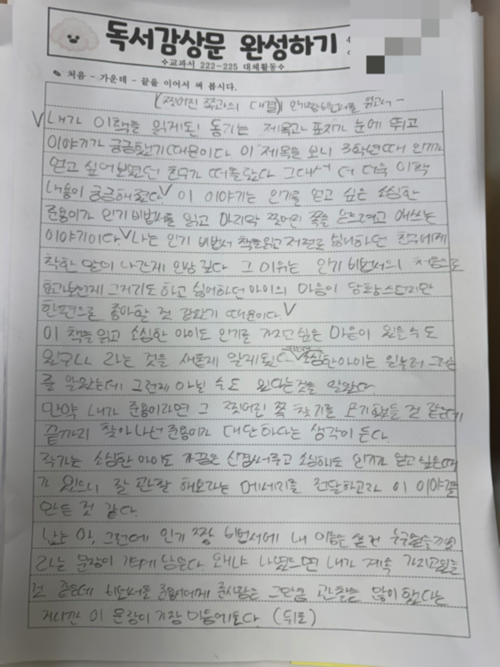 독서감상문 완성하기
◇교과서 222-225 대체활동◇
처음 - 가운데 - 끝을 이어서 써 봅시다.
내가 이책을 읽게된 동기는 제목과 표지가 눈에 띄고
이야기가 궁금했기 때문이다 이 제목을 보니 3학년때 인기가
얻고 싶어보였던 친구가 떠올랐다 그래서 더 더욱 이책
내용이 궁금해졌다 이 이야기는 인기를 얻고 싶은 소심한
준용이가 인기 비법서를 읽고 마지막 찢어진 쪽을 애쓰는
이야기이다 나는 인기 비법서 친구에게
그 이유는 인기 비법서의
그러기도 하고 싫어하던 아이의 마음이 당황스럽지만
한편으로 좋아할 것 같았기 때문이다
이 책을 읽고 소심한 아이도 인기를 가지고 싶은 마음이 있을수도
있구나 라는 것을 새롭게 알게됬다 소심한 아이는 일부러
알았는데 그런게 아닐 수도 있다는것을 알았다
만약 내가 준용이라면 그 찢어진 쪽 찾기를 포기했을 것 같은데
끝까지 찾아나선 준용이가 대단하다는 생각이 든다
작가는 소심한 아이도 가끔은 신경써주고 소심해도 인기가 얻고 싶은때
가 있으니 잘 관찰 해보라는 메세지를 전달하고자 이 이야기를
만든 것 같다
그런데 인기 짱 비법서에 내 이름은
라는 문장이 기억에 남는다 왜냐 나였으면 내가 계속 가지고있을
것 같은데 비법서를 친구에게 준사람은 그만큼 관찰을 많이 했다는
거니깐 이 문장이 가장 마음에든다 (뒤로)